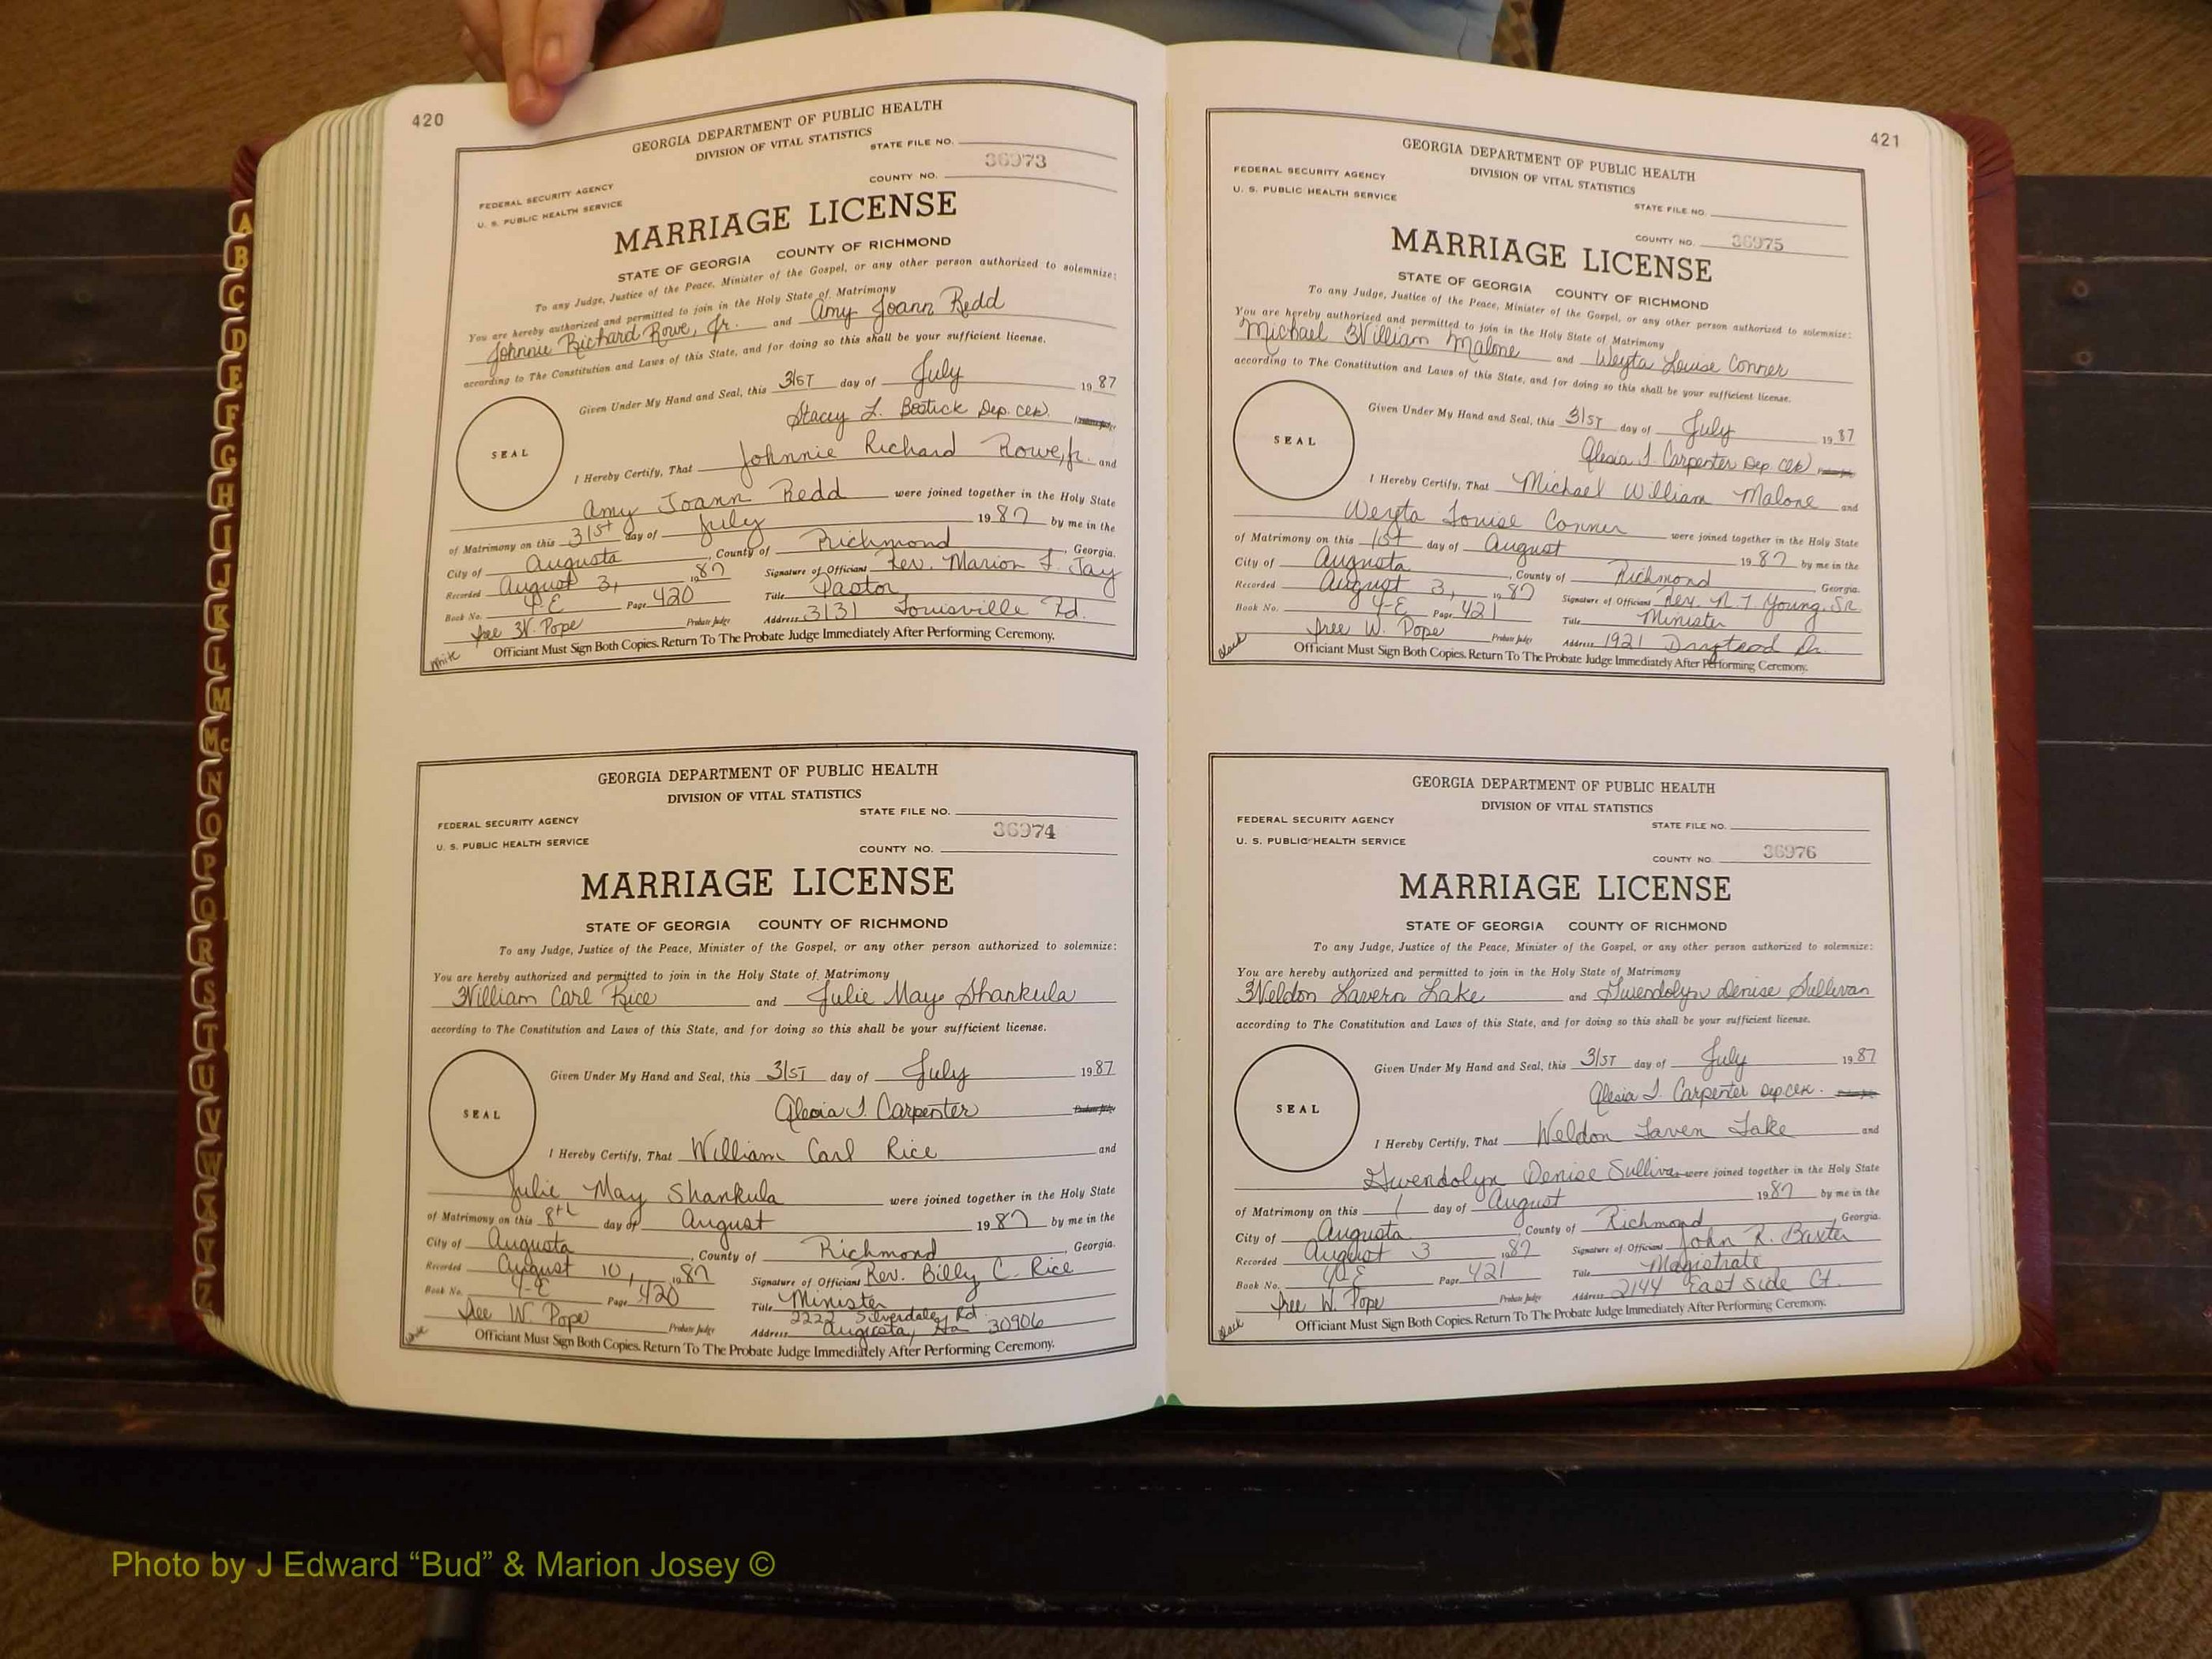 420
GEORGIA DEPARTMENT OF PUBLIC HEALTH
DIVISION OF VITAL STATISTICS
STATE FILE NO.
36973
FEDERAL SECURITY AGENCY
COUNTY NO.
U. S. PUBLIC HEALTH SERVICE
MARRIAGE LICENSE
STATE OF GEORGIA COUNTY OF RICHMOND
To any Judge, Justice of the Peace, Minister of the Gospel, or any other person authorized to solemnize:
You are hereby authorized and permitted to join in the Holy State of Matrimony
Johnnie Richard Rowe, Jr. and Amy Joann Redd
according to The Constitution and Laws of this State, and for doing so this shall be your sufficient license.
Given Under My Hand and Seal, this 31ST day of July 1987
Stacey L. Bostick Dep. Clk.
SEAL
I Hereby Certify, That Johnnie Richard Rowe, Jr. and
Amy Joann Redd were joined together in the Holy State
of Matrimony on this 31st day of July 1987 by me in the
City of Augusta, County of Richmond, Georgia.
Recorded August 3, 1987 Signature of Officiant Rev. Marion F. Jay
Book No. 4-E Page 420 Title Pastor
Iree W. Pope Probate Judge Address 3131 Louisville Rd.
White
Officiant Must Sign Both Copies. Return To The Probate Judge Immediately After Performing Ceremony.
GEORGIA DEPARTMENT OF PUBLIC HEALTH
DIVISION OF VITAL STATISTICS
STATE FILE NO.
FEDERAL SECURITY AGENCY
36974
U. S. PUBLIC HEALTH SERVICE
COUNTY NO.
MARRIAGE LICENSE
STATE OF GEORGIA COUNTY OF RICHMOND
To any Judge, Justice of the Peace, Minister of the Gospel, or any other person authorized to solemnize:
You are hereby authorized and permitted to join in the Holy State of Matrimony
William Carl Rice and Julie May Shankula
according to The Constitution and Laws of this State, and for doing so this shall be your sufficient license.
Given Under My Hand and Seal, this 31ST day of July 1987
Alesia J. Carpenter
SEAL
I Hereby Certify, That William Carl Rice and
Julie May Shankula were joined together in the Holy State
of Matrimony on this 8th day of August 1987 by me in the
City of Augusta, County of Richmond, Georgia.
Recorded August 10, 1987 Signature of Officiant Rev. Billy C. Rice
Book No. 4-E Page 420 Title Minister
2222 Silverdale Rd
Iree W. Pope Probate Judge Address Augusta, Ga 30906
Officiant Must Sign Both Copies. Return To The Probate Judge Immediately After Performing Ceremony.
421
GEORGIA DEPARTMENT OF PUBLIC HEALTH
DIVISION OF VITAL STATISTICS
FEDERAL SECURITY AGENCY
U. S. PUBLIC HEALTH SERVICE
STATE FILE NO.
COUNTY NO. 36975
MARRIAGE LICENSE
STATE OF GEORGIA COUNTY OF RICHMOND
To any Judge, Justice of the Peace, Minister of the Gospel, or any other person authorized to solemnize:
You are hereby authorized and permitted to join in the Holy State of Matrimony
Michael William Malone and Weyta Louise Conner
according to The Constitution and Laws of this State, and for doing so this shall be your sufficient license.
Given Under My Hand and Seal, this 31ST day of July 1987
Alesia J. Carpenter Dep. Clk
SEAL
I Hereby Certify, That Michael William Malone and
Weyta Louise Conner were joined together in the Holy State
of Matrimony on this 1st day of August 1987 by me in the
City of Augusta, County of Richmond Georgia.
Recorded August 3, 1987 Signature of Officiant Rev. N. T. Young, SR
Book No. 4-E Page 421 Title Minister
Iree W. Pope Probate Judge Address 1921 Dr.
Black
Officiant Must Sign Both Copies. Return To The Probate Judge Immediately After Performing Ceremony.
GEORGIA DEPARTMENT OF PUBLIC HEALTH
DIVISION OF VITAL STATISTICS
FEDERAL SECURITY AGENCY
STATE FILE NO.
U. S. PUBLIC HEALTH SERVICE
COUNTY NO. 36976
MARRIAGE LICENSE
STATE OF GEORGIA COUNTY OF RICHMOND
To any Judge, Justice of the Peace, Minister of the Gospel, or any other person authorized to solemnize:
You are hereby authorized and permitted to join in the Holy State of Matrimony
Weldon Lavern Lake and Gwendolyn Denise Sullivan
according to The Constitution and Laws of this State, and for doing so this shall be your sufficient license.
Given Under My Hand and Seal, this 31ST day of July 1987
Alesia J. Carpenter Dep Clk.
SEAL
I Hereby Certify, That Weldon Laven Lake and
Gwendolyn Denise Sullivan were joined together in the Holy State
of Matrimony on this 1 day of August 1987 by me in the
City of Augusta, County of Richmond, Georgia.
Recorded August 3 1987 Signature of Officiant John R. Baxter
Book No. 4-E Page 421 Title Magistrate
Iree W. Pope Probate Judge Address 2144 East Side Ct.
Black
Officiant Must Sign Both Copies. Return To The Probate Judge Immediately After Performing Ceremony.
A
B
C
D
E
F
G
H
I
J
K
L
M
Mc
N
O
P
Q
R
S
T
U
V
W
X
Y
Z
Photo by J Edward “Bud” & Marion Josey ©